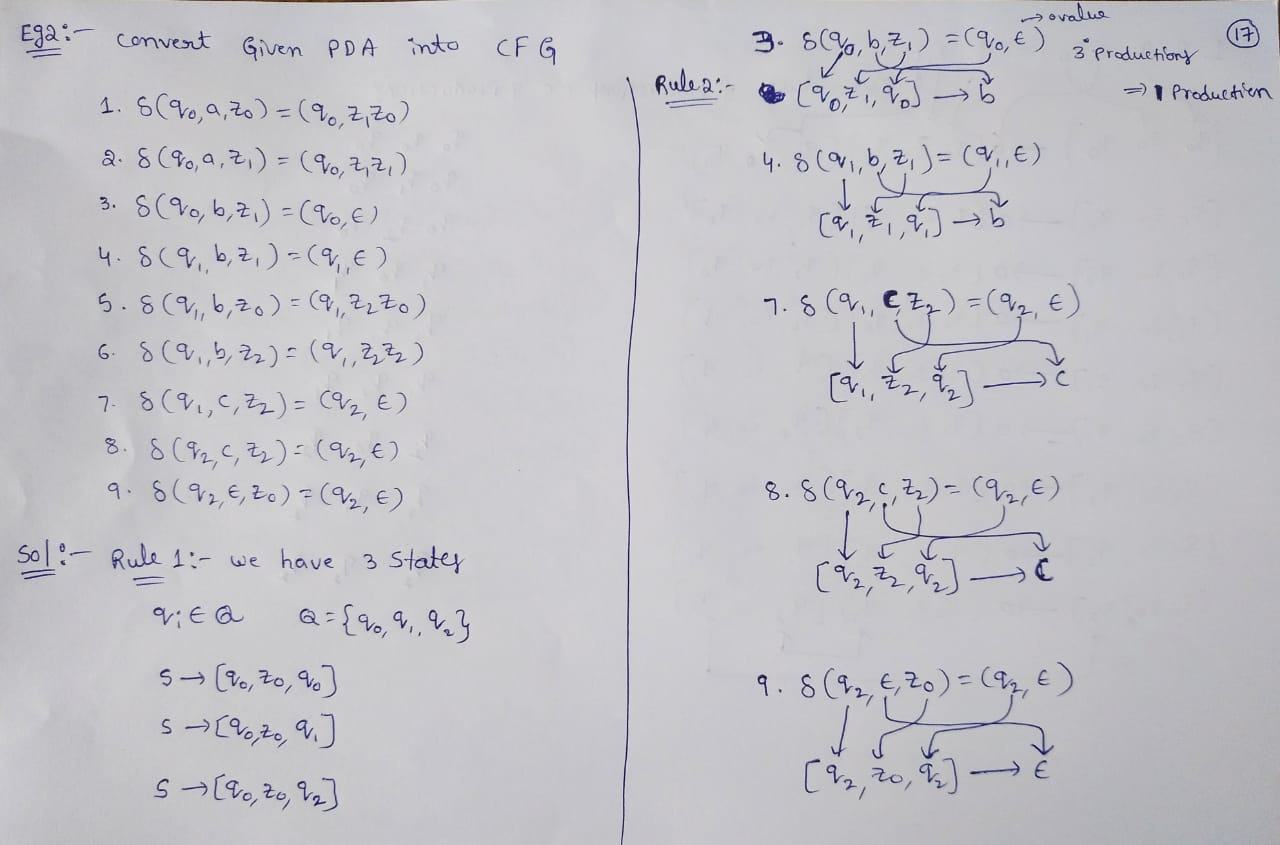 Eg2:- Convert Given PDA into CFG
1. δ(q₀,a,z₀) = (q₀,z₁z₀)
2. δ(q₀,a,z₁) = (q₀,z₁z₁)
3. δ(q₀,b,z₁) = (q₀,ε)
4. δ(q₁,b,z₁) = (q₁,ε)
5. δ(q₁,b,z₀) = (q₁,z₂z₀)
6. δ(q₁,b,z₂) = (q₁,z₂z₂)
7. δ(q₁,c,z₂) = (q₂,ε)
8. δ(q₂,c,z₂) = (q₂,ε)
9. δ(q₂,ε,z₀) = (q₂,ε)
Sol:- Rule 1:- we have 3 States
qᵢ ∈ Q Q = {q₀,q₁,q₂}
S → [q₀,z₀,q₀]
S → [q₀,z₀,q₁]
S → [q₀,z₀,q₂]
17
→ 0 value
3. δ(q₀,b,z₁) = (q₀,ε) 3° Productions
Rule 2:- [q₀,z₁,q₀] → b ⇒ 1 Production
4. δ(q₁,b,z₁) = (q₁,ε)
[q₁,z₁,q₁] → b
7. δ(q₁,c,z₂) = (q₂,ε)
[q₁,z₂,q₂] → c
8. δ(q₂,c,z₂) = (q₂,ε)
[q₂,z₂,q₂] → c
9. δ(q₂,ε,z₀) = (q₂,ε)
[q₂,z₀,q₂] → ε